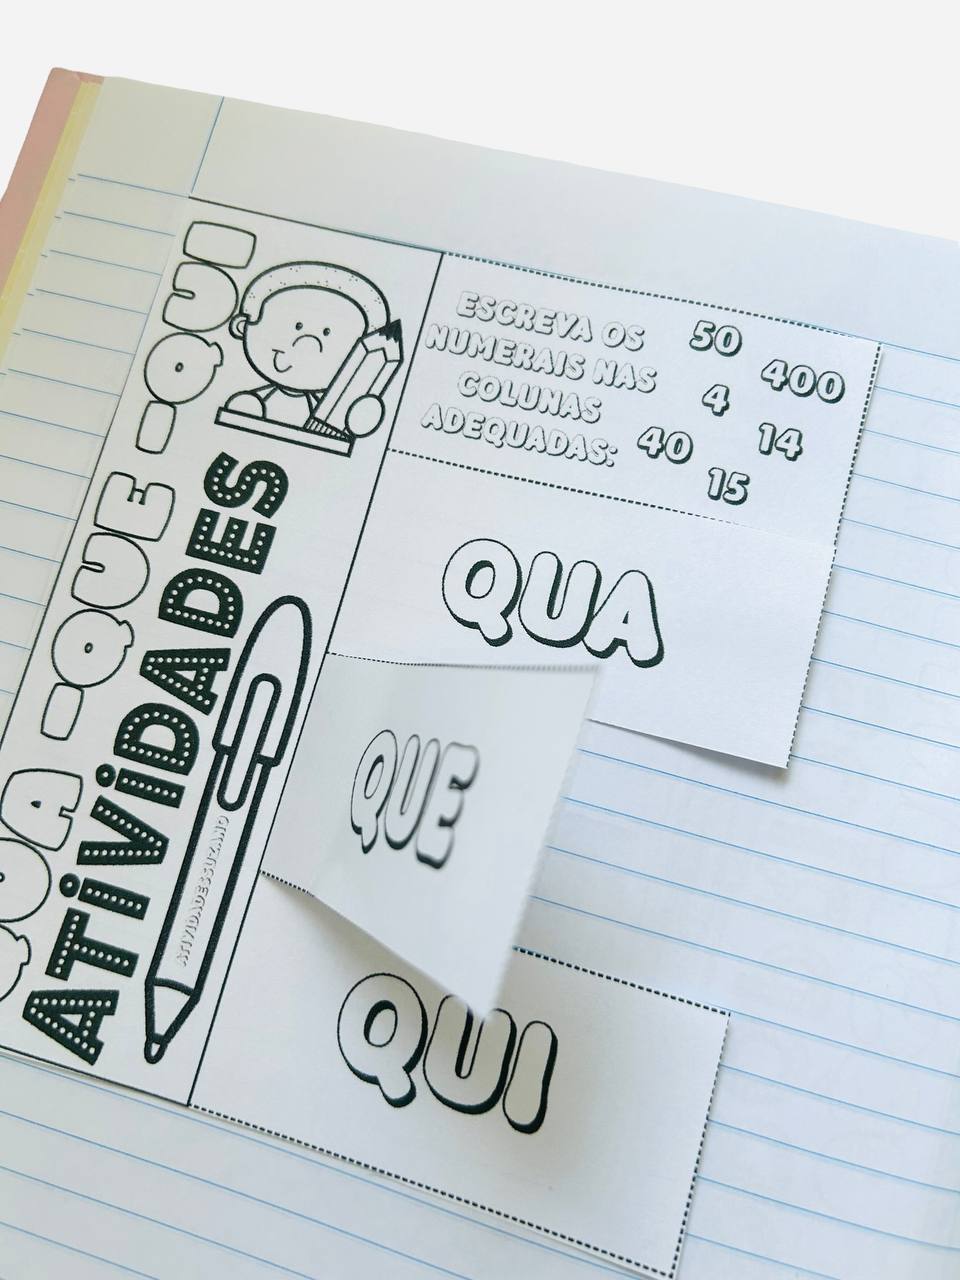 QUA - QUE - QUI
ATIVIDADES
ATIVIDADESSUZANO
ESCREVA OS
NUMERAIS NAS
COLUNAS
ADEQUADAS:
50
400
4
14
40
15
QUA
QUE
QUI